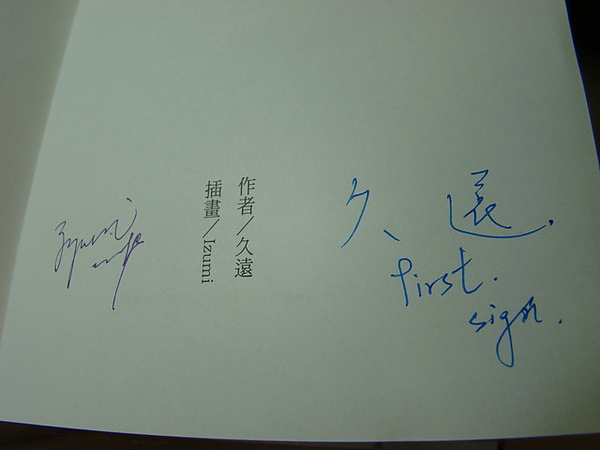 久遠.
first.
sign.
作者/久遠
插畫/Izumi
Izumi